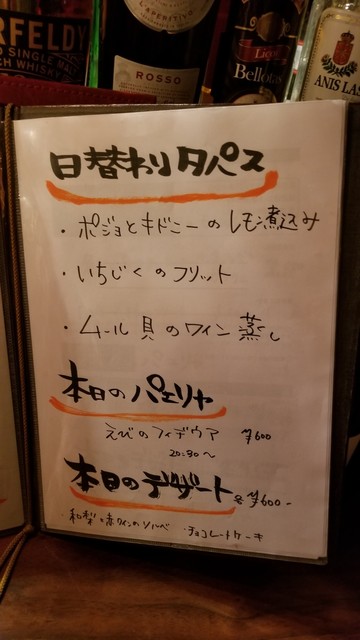 RFELDY
SINGLE MAL
GH WHISKY
L'APERITIVO
ROSSO
Licor
Bellota
ANIS LAS
日替わりタパス
・ポジョとキドニーのレモン煮込み
・いちじくのフリット
・ムール貝のワイン蒸し
本日のパエリヤ
えびのフィデウア ¥600
20:30〜
本日のデザート 各¥600-
・和梨と赤ワインのソルベ ・チョコレートケーキ